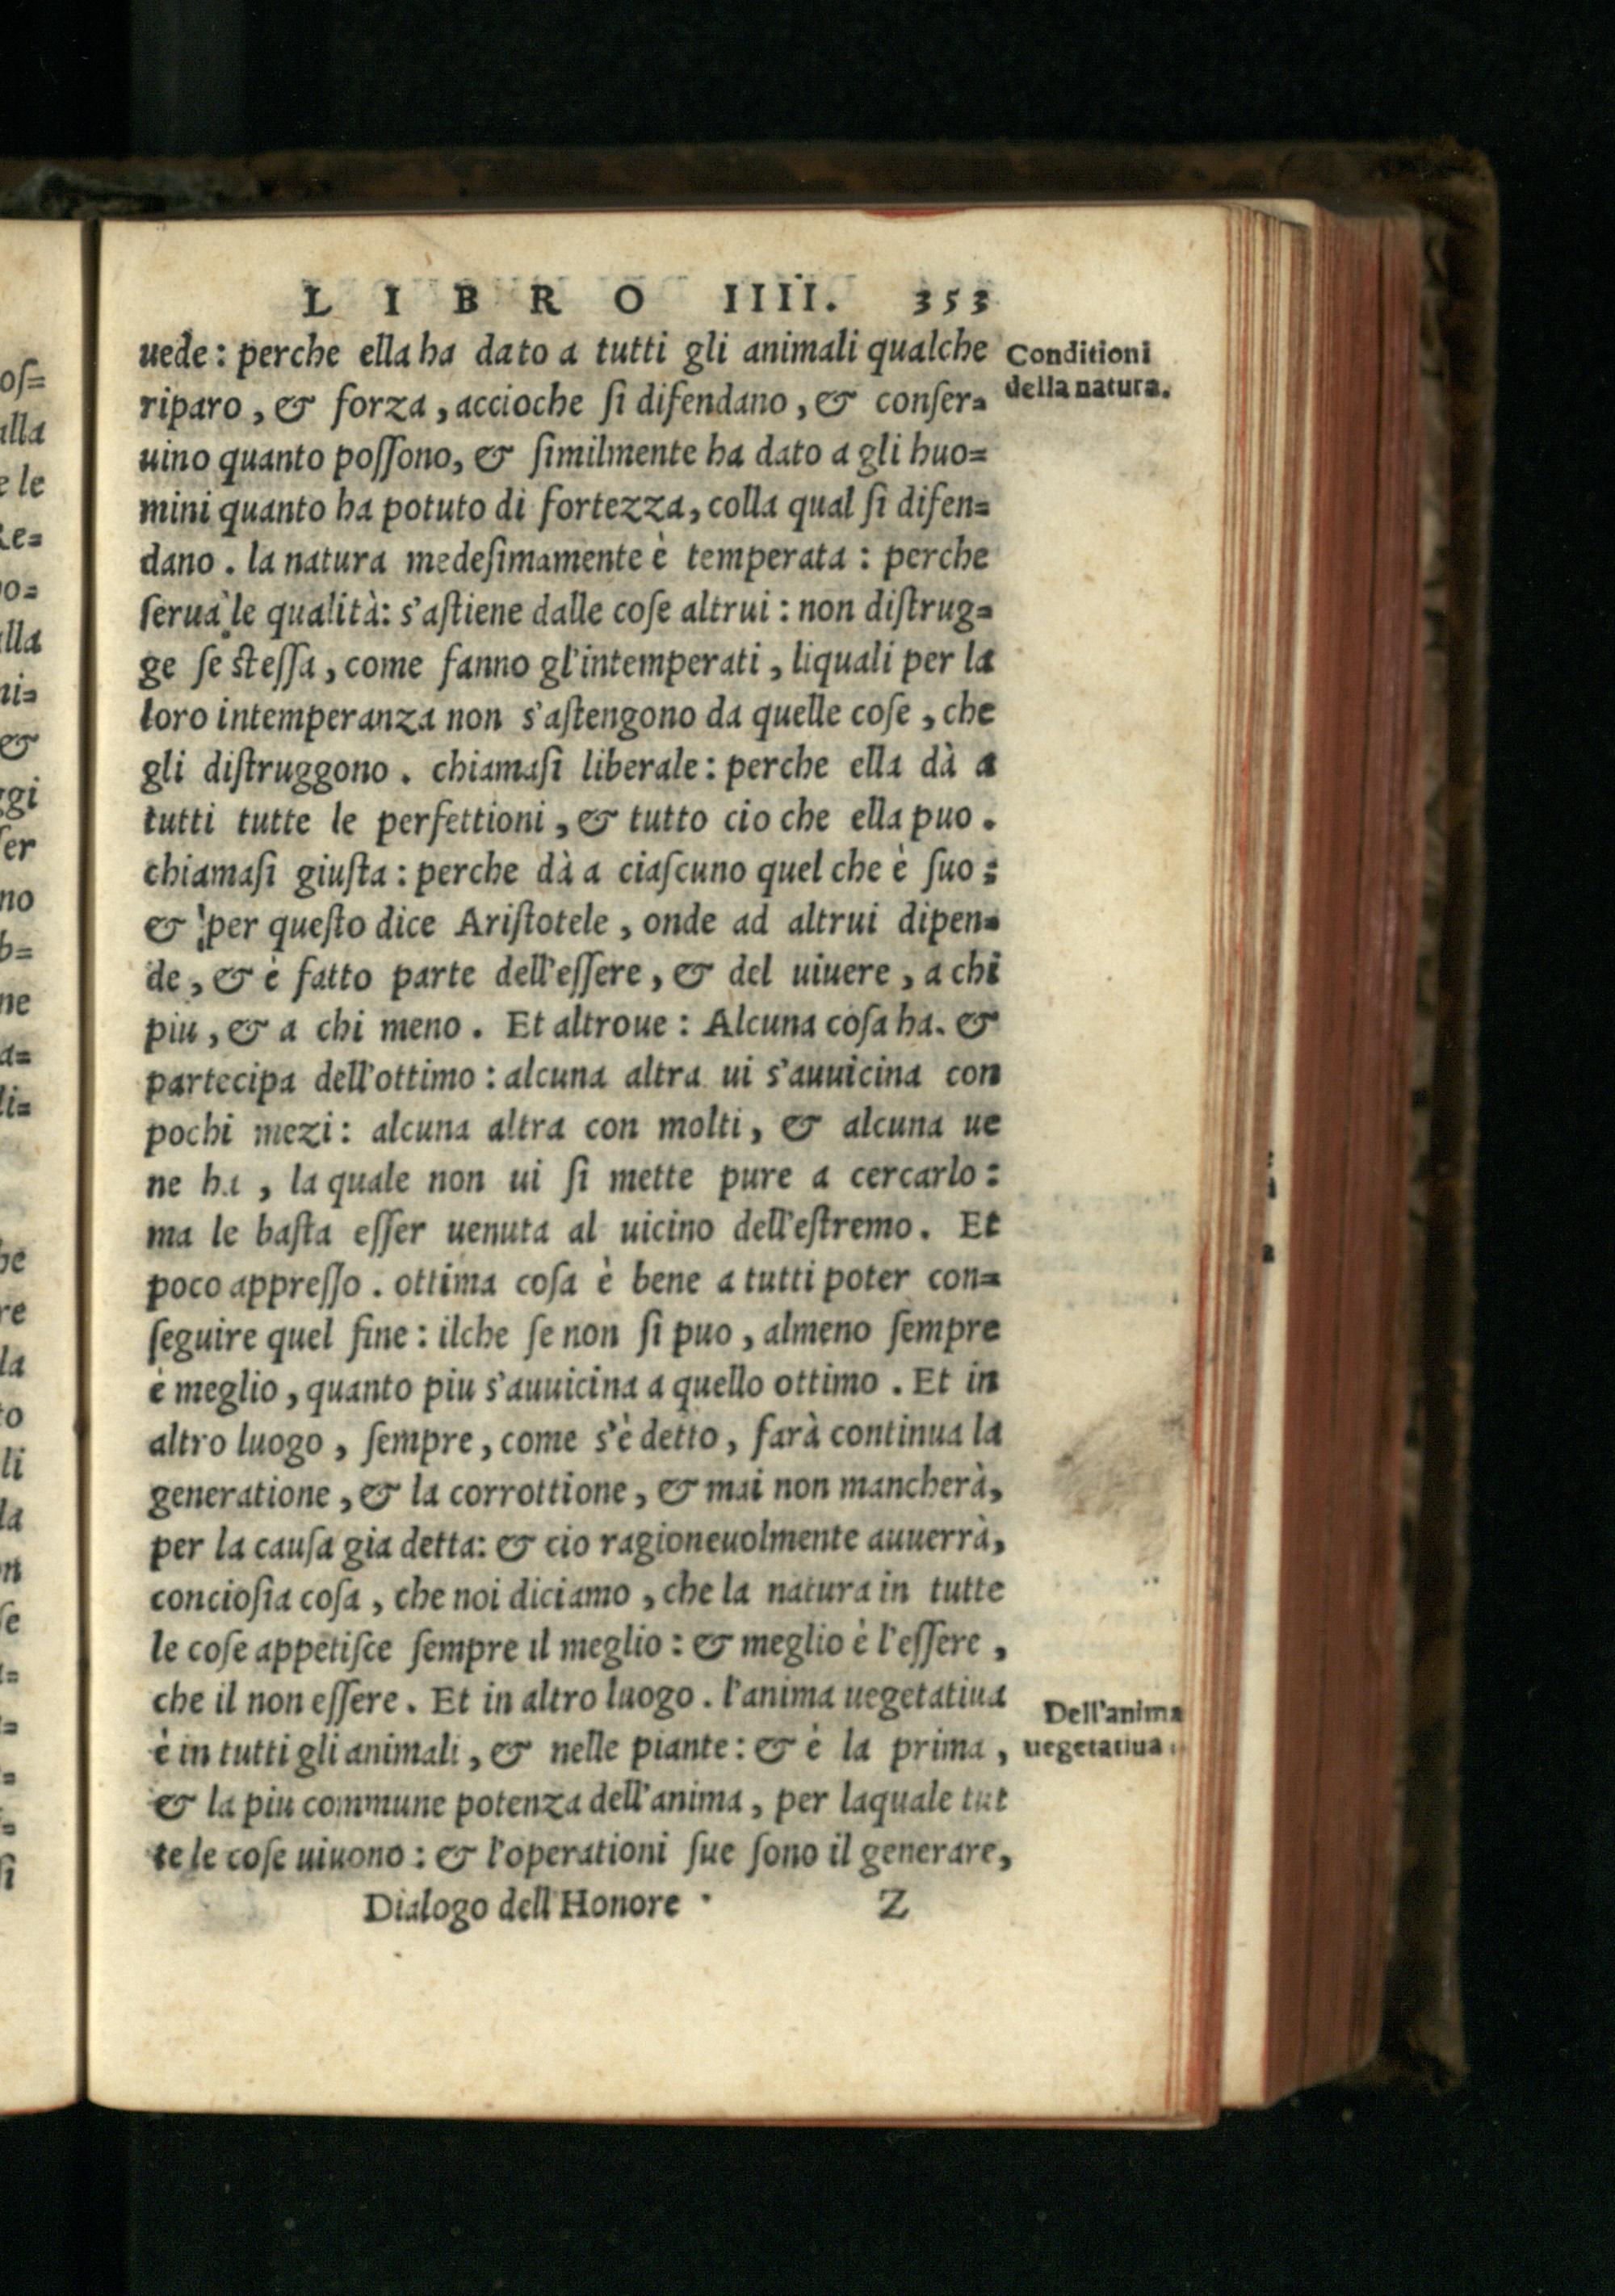 LIBRO IIII. 353
uede: perche ella ha dato a tutti gli animali qualche
Conditioni
della natura.
riparo, & forza, accioche ſi difendano, & conſer=
uino quanto poſſono, & ſimilmente ha dato a gli huo=
mini quanto ha potuto di fortezza, colla qual ſi difen=
dano. la natura medeſimamente è temperata: perche
ſerua le qualità: s'aſtiene dalle coſe altrui: non diſtrug=
ge ſe ſteſſa, come fanno gl'intemperati, liquali per la
loro intemperanza non s'aſtengono da quelle coſe, che
gli diſtruggono. chiamaſi liberale: perche ella dà a
tutti tutte le perfettioni, & tutto cio che ella puo.
chiamaſi giuſta: perche dà a ciaſcuno quel che è ſuo:
& per queſto dice Ariſtotele, onde ad altrui dipen=
de, & è fatto parte dell'eſſere, & del uiuere, a chi
piu, & a chi meno. Et altroue: Alcuna coſa ha. &
partecipa dell'ottimo: alcuna altra ui s'auuicina con
pochi mezi: alcuna altra con molti, & alcuna ue
ne ha, la quale non ui ſi mette pure a cercarlo:
ma le baſta eſſer uenuta al uicino dell'eſtremo. Et
poco appreſſo. ottima coſa è bene a tutti poter con=
ſeguire quel fine: ilche ſe non ſi puo, almeno ſempre
è meglio, quanto piu s'auuicina a quello ottimo. Et in
altro luogo, ſempre, come s'è detto, farà continua la
generatione, & la corrottione, & mai non mancherà,
per la cauſa gia detta: & cio ragioneuolmente auuerrà,
conciosia coſa, che noi diciamo, che la natura in tutte
le coſe appetiſce ſempre il meglio: & meglio è l'eſſere,
che il non eſſere. Et in altro luogo. l'anima uegetatiua
Dell'anima
uegetatiua
è in tutti gli animali, & nelle piante: & è la prima,
& la piu commune potenza dell'anima, per laquale tut
te le coſe uiuono: & l'operationi ſue ſono il generare,
Dialogo dell Honore Z
oſ=
alla
e le
Re=
alla
ni=
&
ggi
ſer
no
b=
ne
a=
li=
he
re
la
to
li
la
on
ſe
ſi